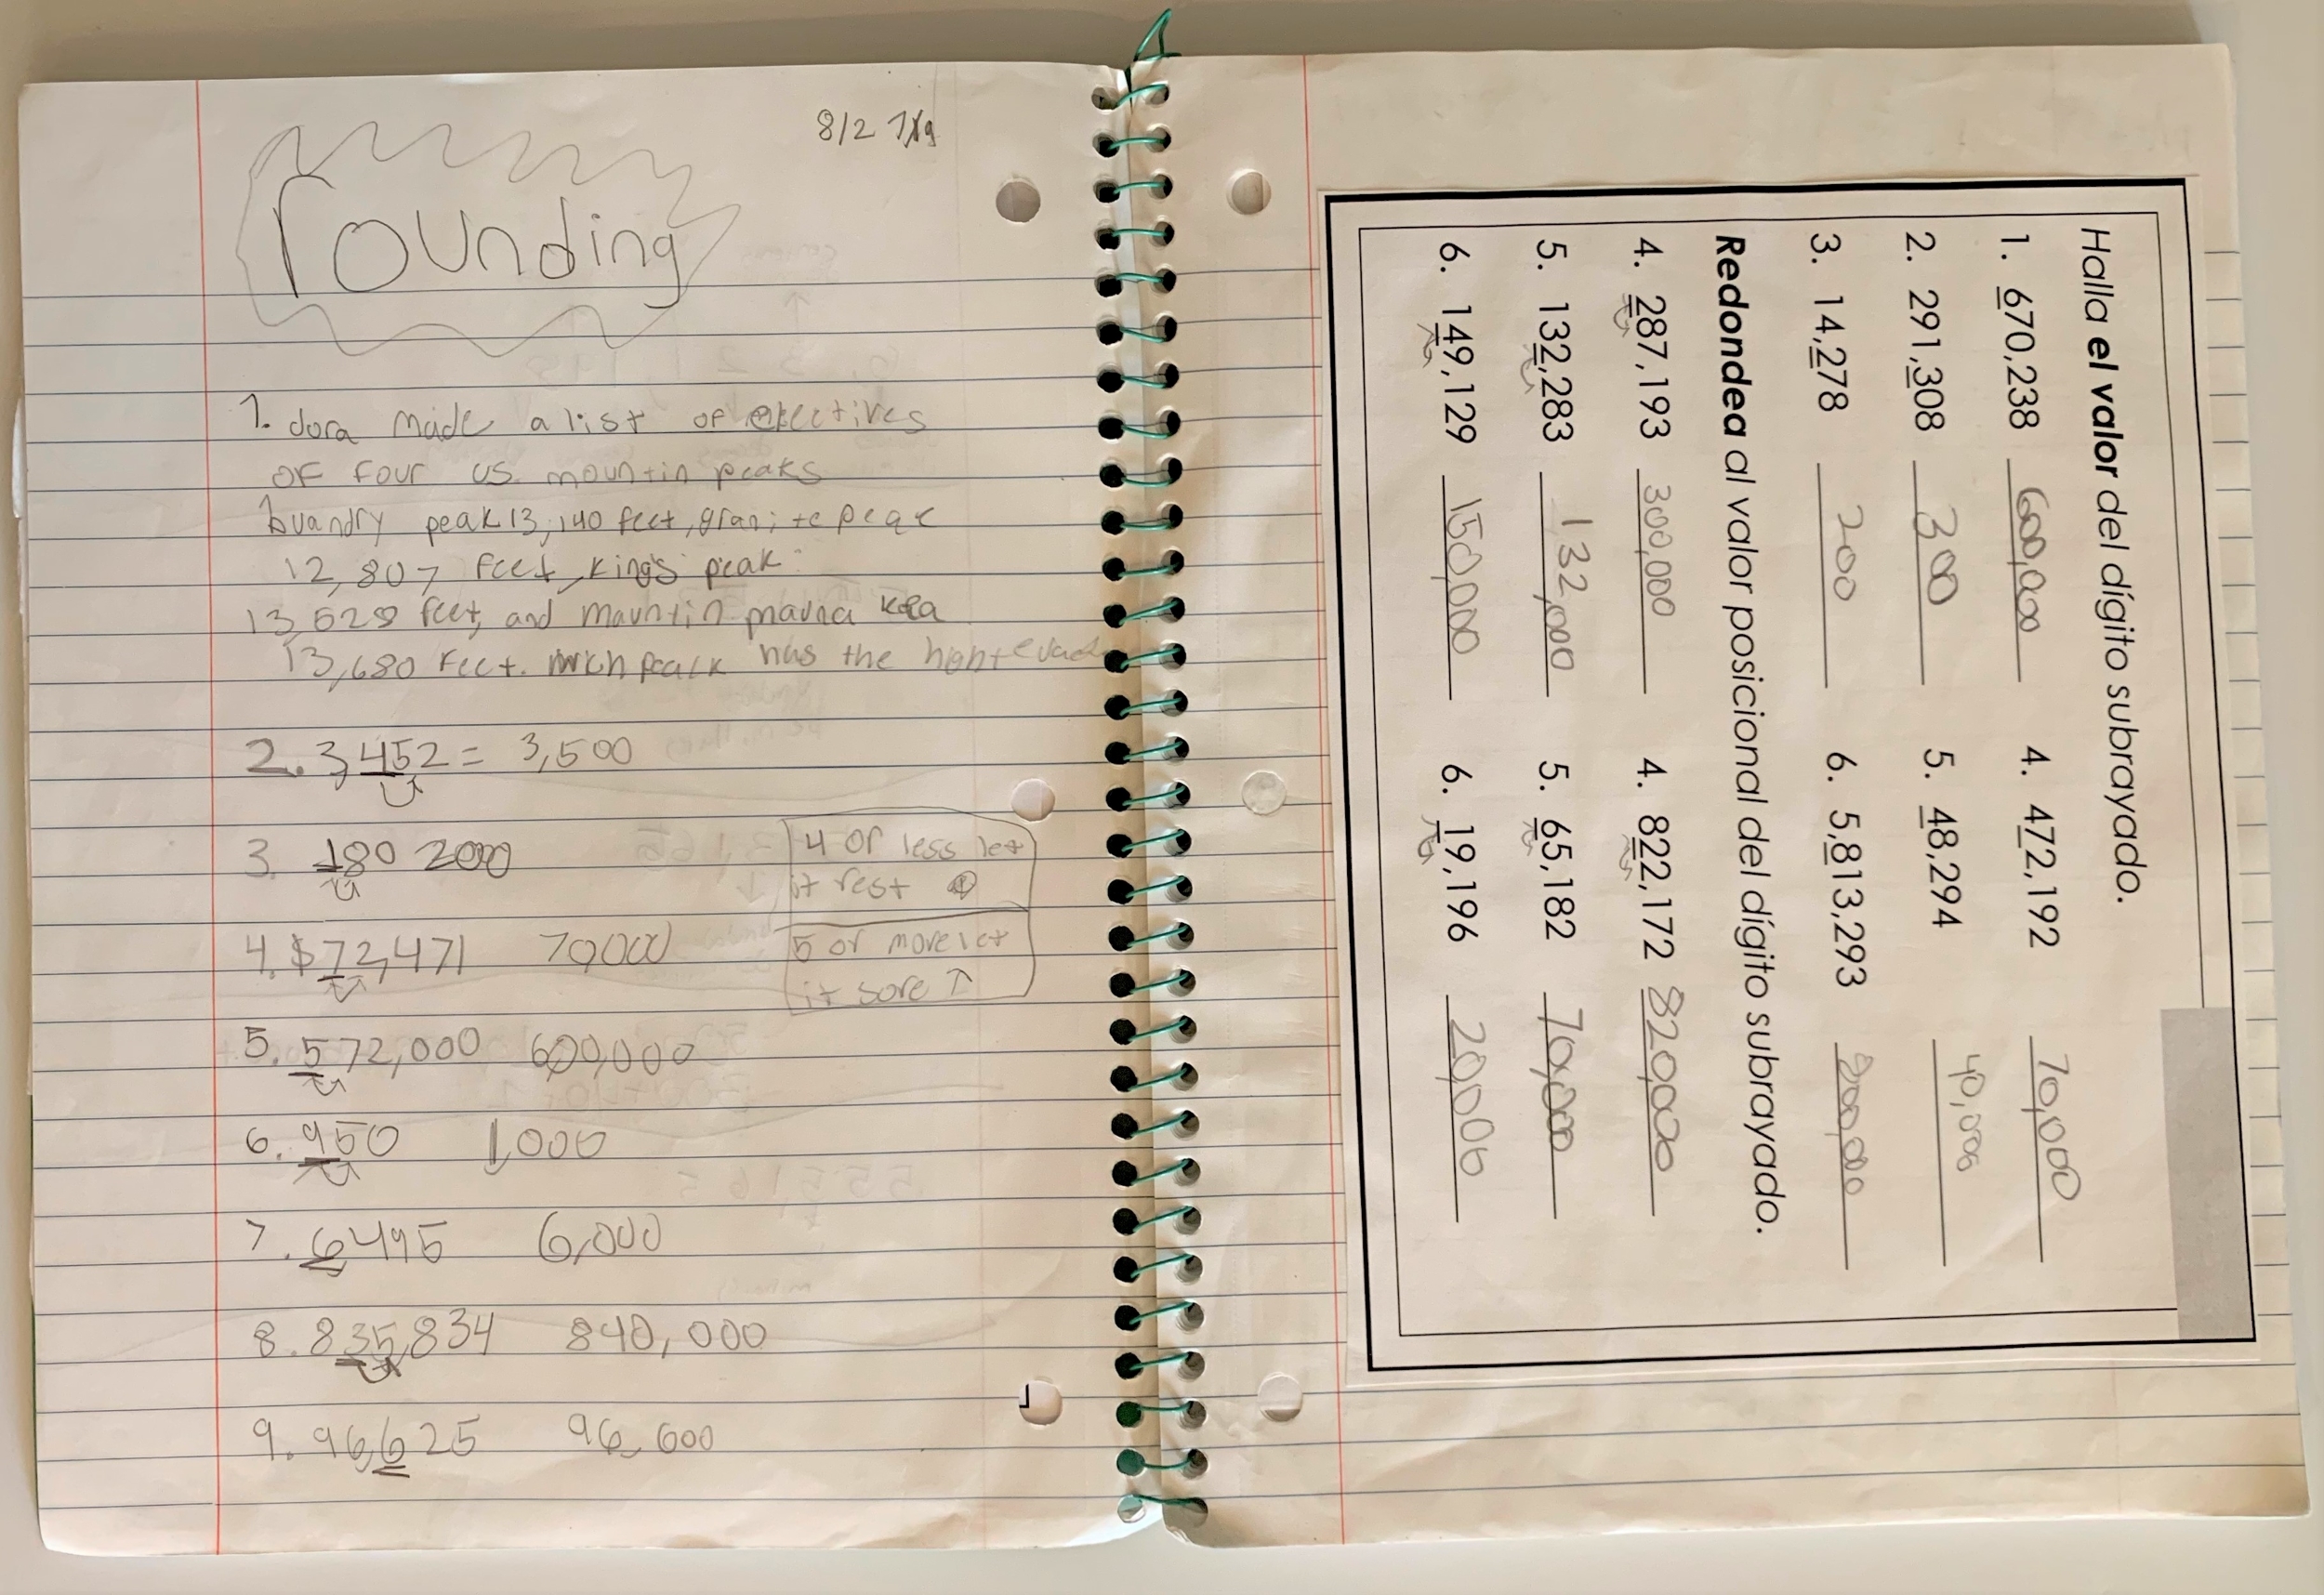 8/2
rounding
1. dora made a list of
of four us. mountin peaks
peak 13,140 feet, granite peak
12,807 feet, king's peak
13,528 feet, and mauntin mauna kea
13,680 feet. has the
2. 3,452 = 3,500
3. 180 2000
4 or less let
it rest
4. $72,471 70000
5 or more let
it sore ↑
5. 572,000 600,000
6. 950 1,000
7. 6495 6,000
8. 835,834 840,000
9. 96,625 96,600
Halla el valor del dígito subrayado.
1. 670,238 600,000 4. 472,192 70,000
2. 291,308 300 5. 48,294 40,000
3. 14,278 200 6. 5,813,293 800,000
Redondea al valor posicional del dígito subrayado.
4. 287,193 300,000 4. 822,172 820,000
5. 132,283 132,000 5. 65,182 70,000
6. 149,129 150,000 6. 19,196 20,000